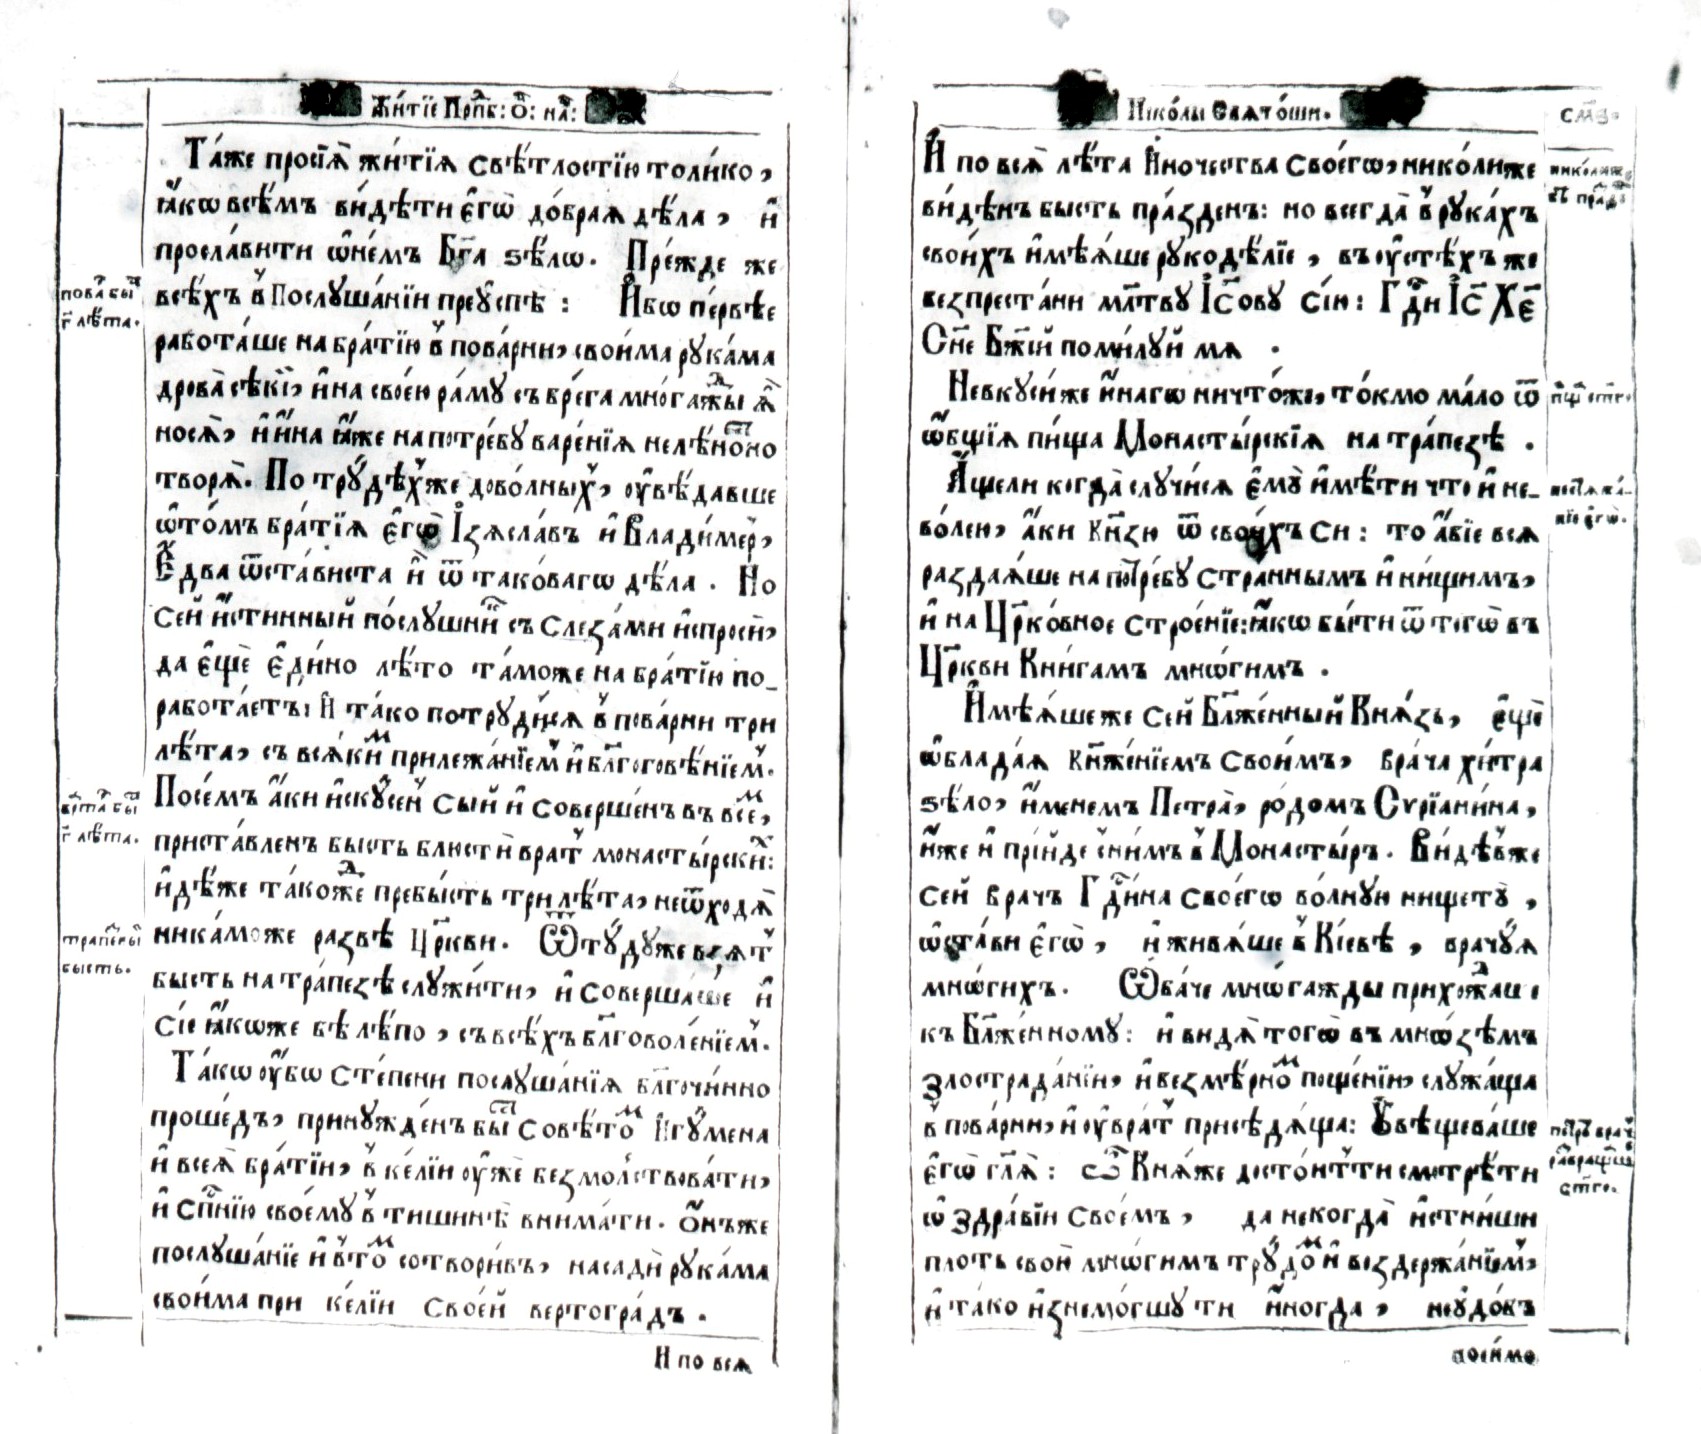 Жи́тїе Прп͠б: Ѻ҃: на́:
Та́же просїѧ̀ жи́тїѧ свѣ́тлостїю толи́ко,
ꙗ҆́кѡ всѣ́мъ ви́дѣти є҆гѡ̀ до́браѧ дѣ́ла, и҆
просла́вити ѡ҆ не́мъ Бг҃а ѕѣ́лѡ. Пре́жде же
всѣ́хъ в̾ Послуша́нїи преуспѣ̀: И҆́бѡ пе́рвѣе
рабо́таше на бра́тїю в̾ пова́рни, свои́ма рука́ма
дрова̀ сѣкі́й, и҆ на свое́ю ра́му съ бре́га мно́гажды ѧ҆̀
носѧ̀, и҆ и҆́на ꙗ҆́же на потре́бу варе́нїѧ нелѣ́ностно
творѧ̀. По трꙋ́дѣхже дово́лныхъ, ᲂу҆вѣ́давше
ѡ҆ то́мъ бра́тїѧ є҆гѡ̀ І҆зѧсла́въ и҆ Влади́меръ,
Є҆два ѿста́виста и҆̀ ѿ тако́вагѡ дѣ́ла. Но
Се́й и҆́стинный по́слушникъ съ Слеза́ми и҆спросѝ,
да є҆щѐ є҆ди́но лѣ́то та́може на бра́тїю по-
рабо́таетъ: И҆ та́ко потруди́сѧ в̾ пова́рни три
лѣ́та, съ всѧ́кимъ прилежа́нїемъ и҆ бл҃гоговѣ́нїемъ.
Посе́мъ а҆́ки и҆скꙋ́сенъ сы́й и҆ соверше́нъ въ все́мъ,
приста́вленъ бы́сть блюстѝ вра́тъ монасты́рскихъ:
и҆дѣ́же та́кожде пребы́сть три лѣ́та, не ѿходѧ̀
ника́може ра́звѣ Цр҃кви. Ѿтꙋ́дуже взѧ́тъ
бы́сть на тра́пезѣ служи́ти, и҆ соверша́ше и҆
сїе ꙗ҆́коже бѣ лѣ́по, съ всѣ́хъ бл҃говоле́нїемъ.
Та́кѡ ᲂу҆́бѡ сте́пени послуша́нїѧ бл҃гочи́нно
проше́дъ, принужде́нъ бы́сть совѣ́томъ И҆гꙋ́мена
и҆ всеѧ̀ бра́тїи, в̾ ке́лїи ᲂу҆жѐ безмо́лствовати,
и҆ сп҃се́нїю своему̀ в̾ тишинѣ̀ внима́ти. Ѻ҆́нъже
послуша́нїе и҆ в̾ то́мъ сотвори́въ, насадѝ рука́ма
свои́ма при ке́лїи Свое́й вертогра́дъ.
И по всѧ
пова́ бы́
г҃ лѣ́та.
вра́та́ бы́
г҃ лѣ́та.
трапе́ бы́
бысть.
Нїко́лы Свѧто́ши.
И҆ по всѧ̀ лѣ́та И҆́ночества Своегѡ̀, нико́лиже
ви́дѣнъ бы́сть пра́зденъ: но всегда̀ в̾ рука́хъ
свои́хъ и҆мѣ́ѧше рукодѣ́лїе, въ ᲂу҆стѣ́хъ же
безпреста́ни мл҃тву І҆с҃ову сїю: Гд҃и І҆с҃ Хе҃
Сн҃е Бж҃їй поми́луй мѧ.
Не вкуси́же и҆́нагѡ ничто́же, то́кмо ма́ло ѿ
ѡ҆́бщїѧ пи́ща Монасты́рскїѧ на тра́пезѣ.
А҆́щели когда̀ случи́сѧ є҆мꙋ̀ и҆мѣ́ти что̀ и҆ не-
во́лею, а҆́ки Кн҃зю ѿ свои́хъ си: то а҆́бїе всѧ
раздаѧ́ше на потре́бу стра́ннымъ и҆ ни́щимъ,
и҆ на Цр҃ко́вное строе́нїе: ꙗ҆́кѡ бы́ти ѿ тогѡ̀ въ
Цр҃кви Кни́гамъ мнѡ́гимъ.
И҆мѣ́ѧшеже сей Бл҃же́нный Кнѧ́зь, є҆щѐ
ѡ҆блада́ѧ кн҃же́нїемъ Свои́мъ, врача̀ хи́тра
ѕѣло̀, и҆́менемъ Петра̀, ро́домъ Сурїани́на,
и҆́же и҆ прїи́де с̾ни́мъ в̾ Монасты́рь. Ви́дѣвже
се́й вра́чъ Гд҃и́на своегѡ̀ во́лную нищетꙋ̀,
ѡ҆ста́ви є҆гѡ̀, и҆ живѧ́ше в̾ Кі́евѣ, врачꙋ́ѧ
мнѡ́гихъ. Ѻ҆ба́че мнѡ́гажды прихожда́ше
къ Бл҃же́нному: и҆ ви́дѧ тогѡ̀ въ мнѡ́зѣмъ
злострада́нїи, и҆ безмѣ́рномъ поще́нїи, служа́ща
в̾ пова́рни, и҆ ᲂу҆ вра́тъ присѣдѧ́ща: Оу҆вѣщева́ше
є҆гѡ̀ гл҃ѧ: ѽ Кнѧ́же досто́итъ ти смотрѣ́ти
ѡ҆ здра́вїи свое́мъ, да некогда̀ и҆стни́ши
пло́ть свою̀ мнѡ́гимъ трꙋдо́мъ и҆ воздержа́нїемъ,
и҆ та́ко и҆знемо́гшу ти и҆ногда, неудо́бъ
носи́мо
николиже
бѣ пра́з
пи́щ ст҃го
нестѧжа́-
нїе є҆гѡ̀.
пе́тръ врач
ст҃го.